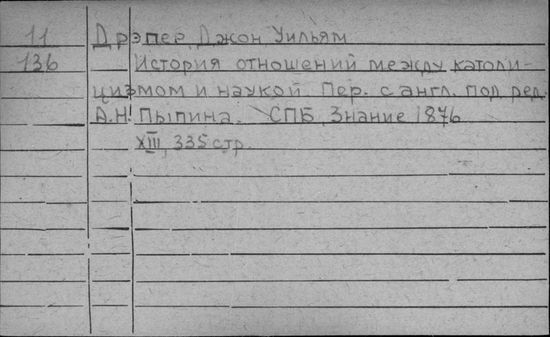 11 Дрэпер, Джон Уильям
136 История отношений между католи-
цизмом и наукой. Пер. с англ. под ред.
А.Н. Пыпина. СПБ, Знание 1876
XIII, 335 стр.